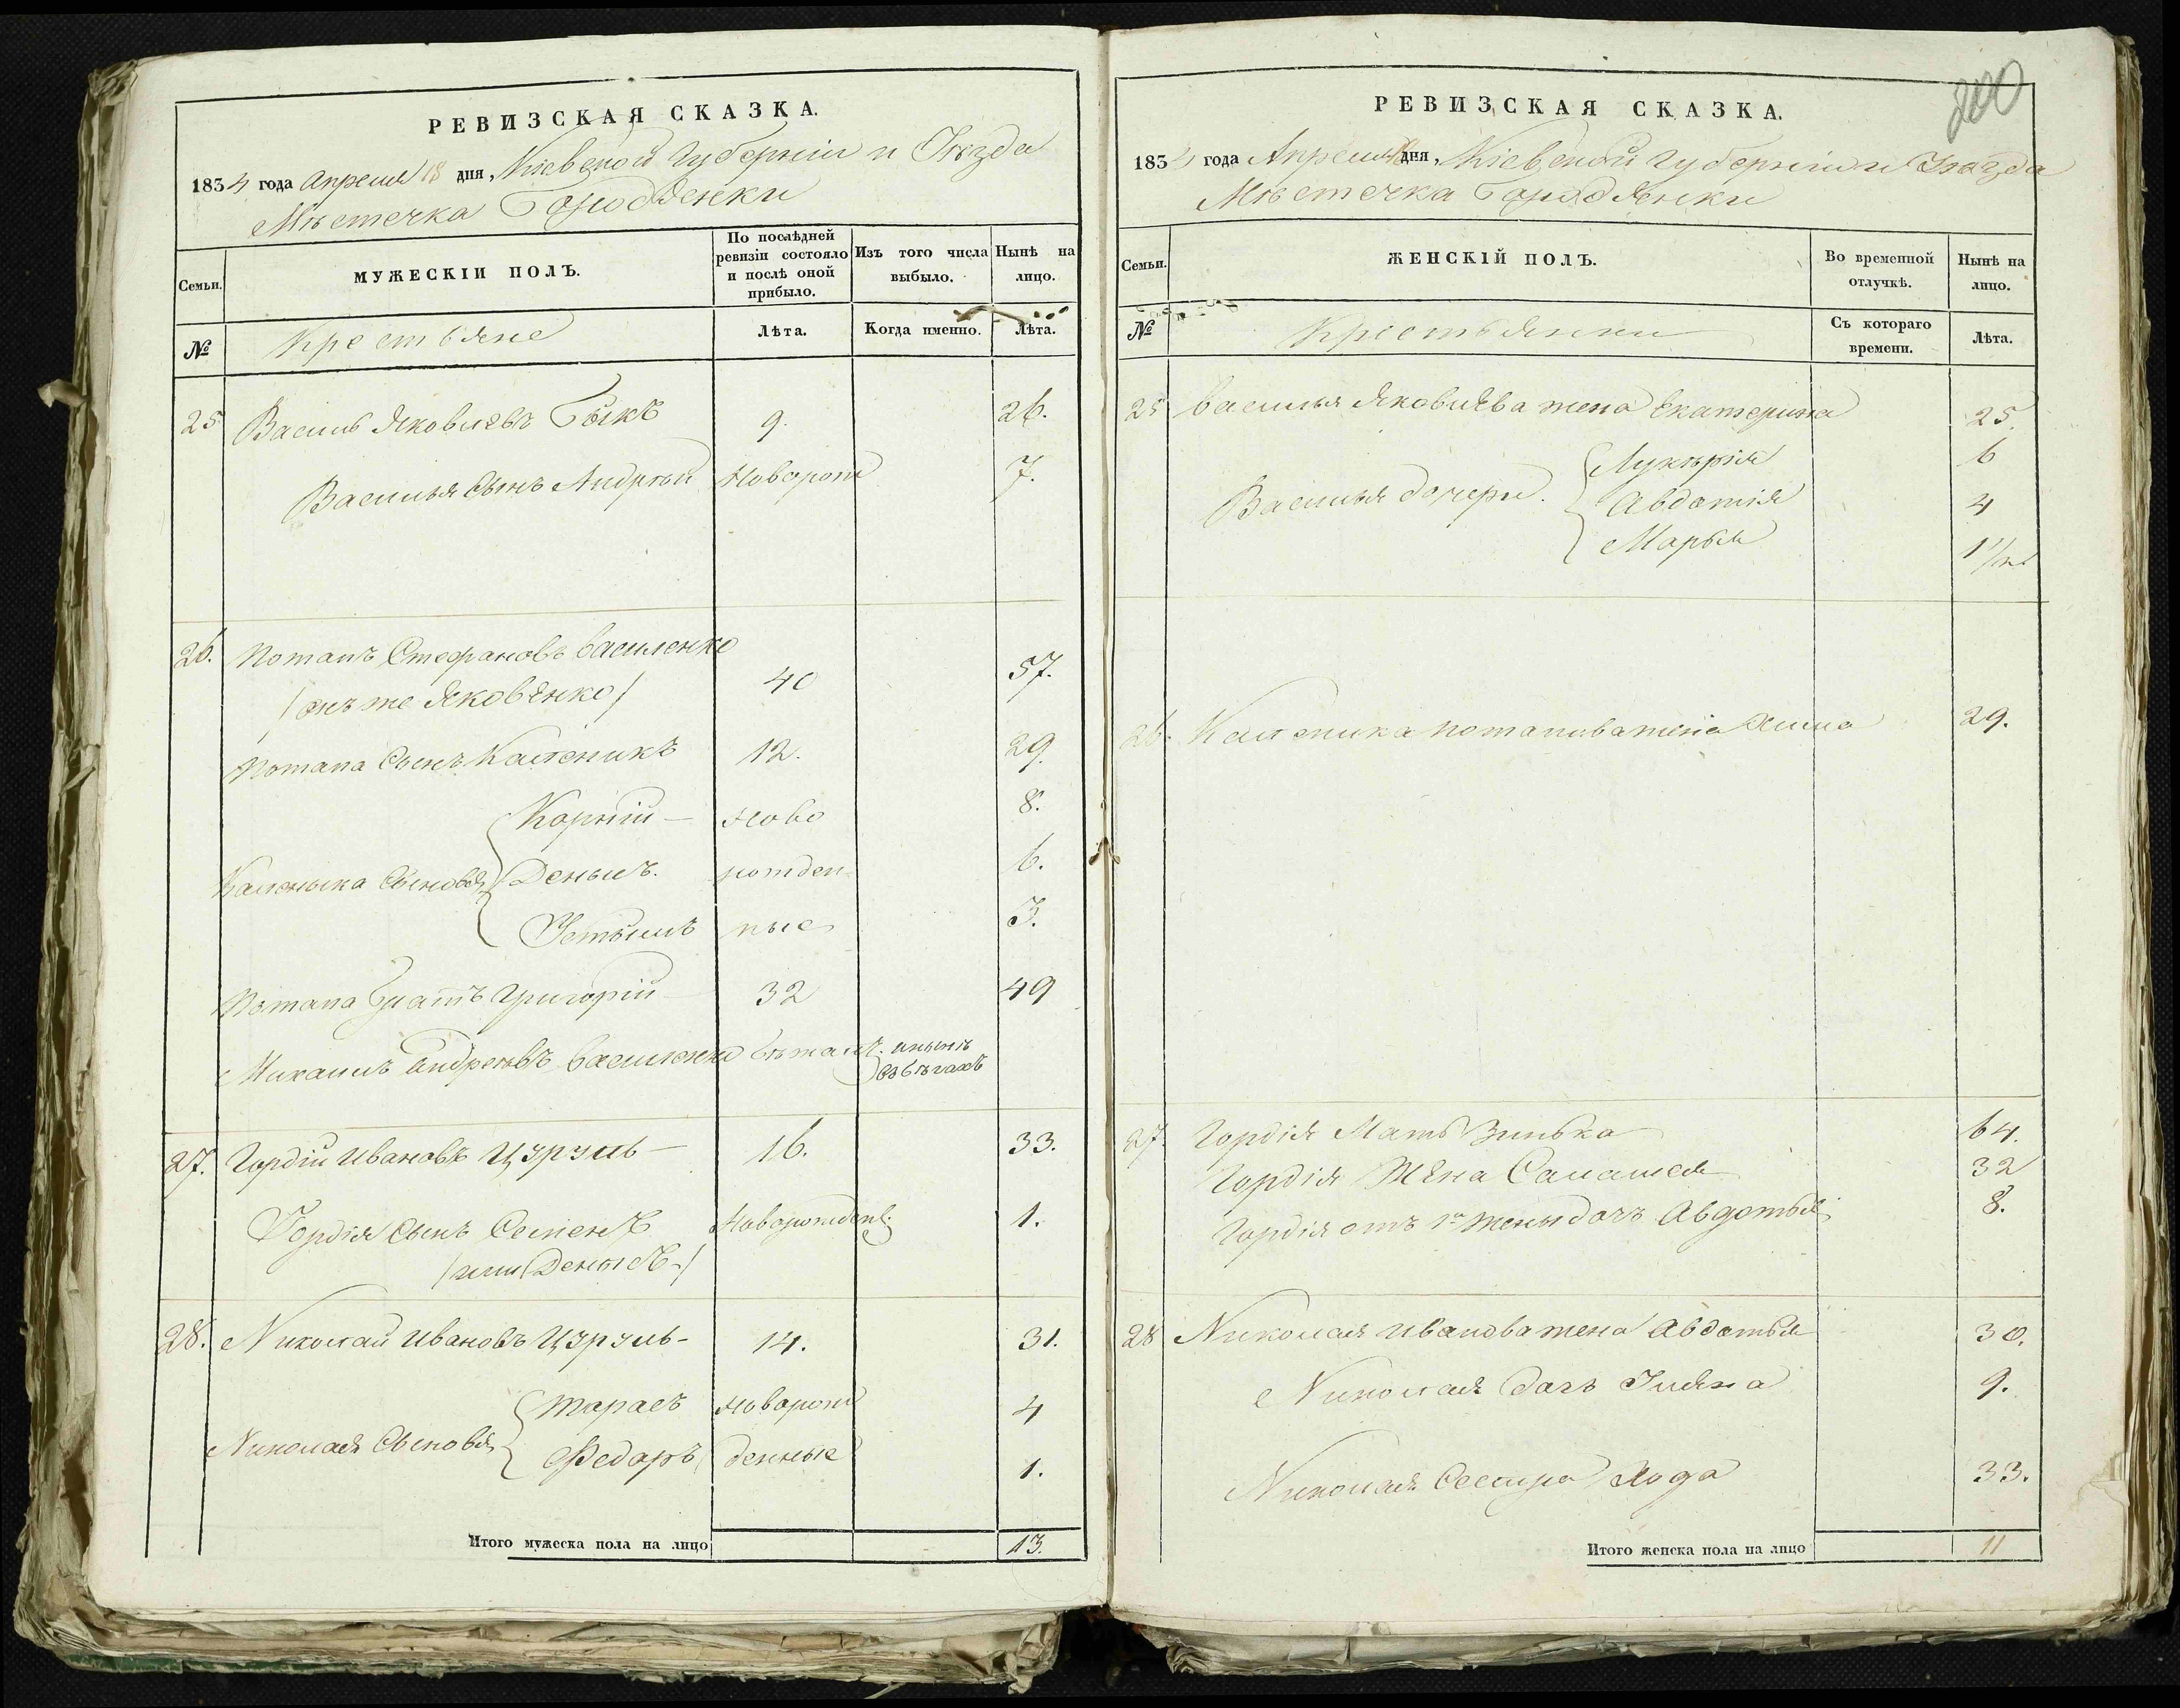 РЕВИЗСКАЯ СКАЗКА.
1834 года Апреля 18 дня, Кіевской Губерніи и Уѣзда
Мѣстечка Бородянки
Семьи.
МУЖЕСКІЙ ПОЛЪ.
По послѣдней ревизіи состояло и послѣ оной прибыло.
Изъ того числа выбыло.
Нынѣ на лицо.
№
Крестьяне
Лѣта.
Когда именно.
Лѣта.
25 Василь Яковлевъ Быкъ 9. 26.
Василья Сынъ Андрѣй Новорож 7.
26. Потапъ Стефановъ Василенко
/онъ же Яковенко/ 40 57.
Потапа Сынъ Каленикъ 12. 29.
Корній — Ново 8.
Каленыка Сыновья Денысъ. рожден- 6.
Устымъ ные 3.
Потапа Братъ Григорій — 32 49
Михаилъ Андреевъ Василенко Бежалъ. и нынѣ
въ бѣгахъ
27. Гордій Ивановъ Цэрэль — 16. 33.
Гордія Сынъ Семенъ Новорожден. 1.
/или Денысъ-/
28. Николай Ивановъ Цэрэль - 14. 31.
Тарасъ Новорож 4
Николая Сыновья Федоръ денные 1.
Итого мужеска пола на лицо 13.
200
РЕВИЗСКАЯ СКАЗКА.
1834 года Апреля 18 дня, Кіевской Губерніи и Уѣзда
Мѣстечка Бородянки
Семьи.
ЖЕНСКІЙ ПОЛЪ.
Во временной отлучкѣ.
Нынѣ на лицо.
№
Крестьянки
Съ котораго времени.
Лѣта.
25 Василья Яковлева жена Екатерина 25.
Лукѣрія 6
Василья дочери. Авдотія 4
Марья
26. Каленика Потапова жена 29.
27. Гордія Мать Зинька 64.
Гордія Жена 32
Гордія отъ 1й жены дочь Авдотья 8.
28 Николая Иванова жена Авдотья 30.
Николая дочь Уляна 9.
Николая Сестра 33.
Итого женска пола на лицо 11